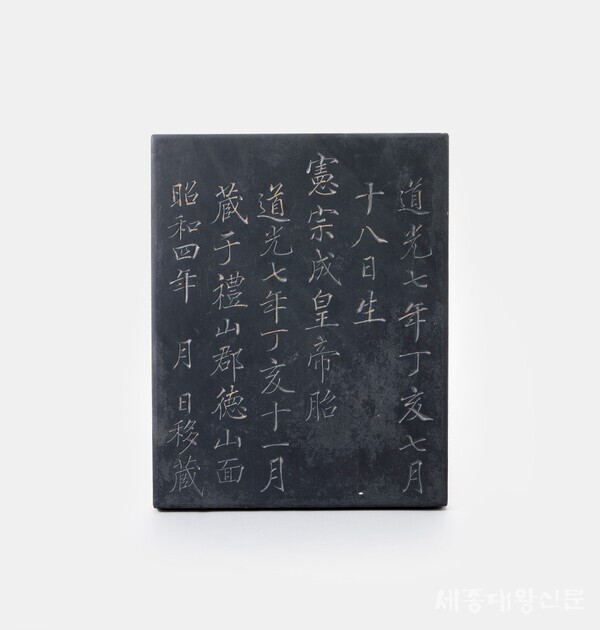 道光七年丁亥七月
十八日生
憲宗成皇帝胎
道光七年丁亥十一月
蔵于禮山郡徳山面
昭和四年 月 日移蔵
세종대왕신문